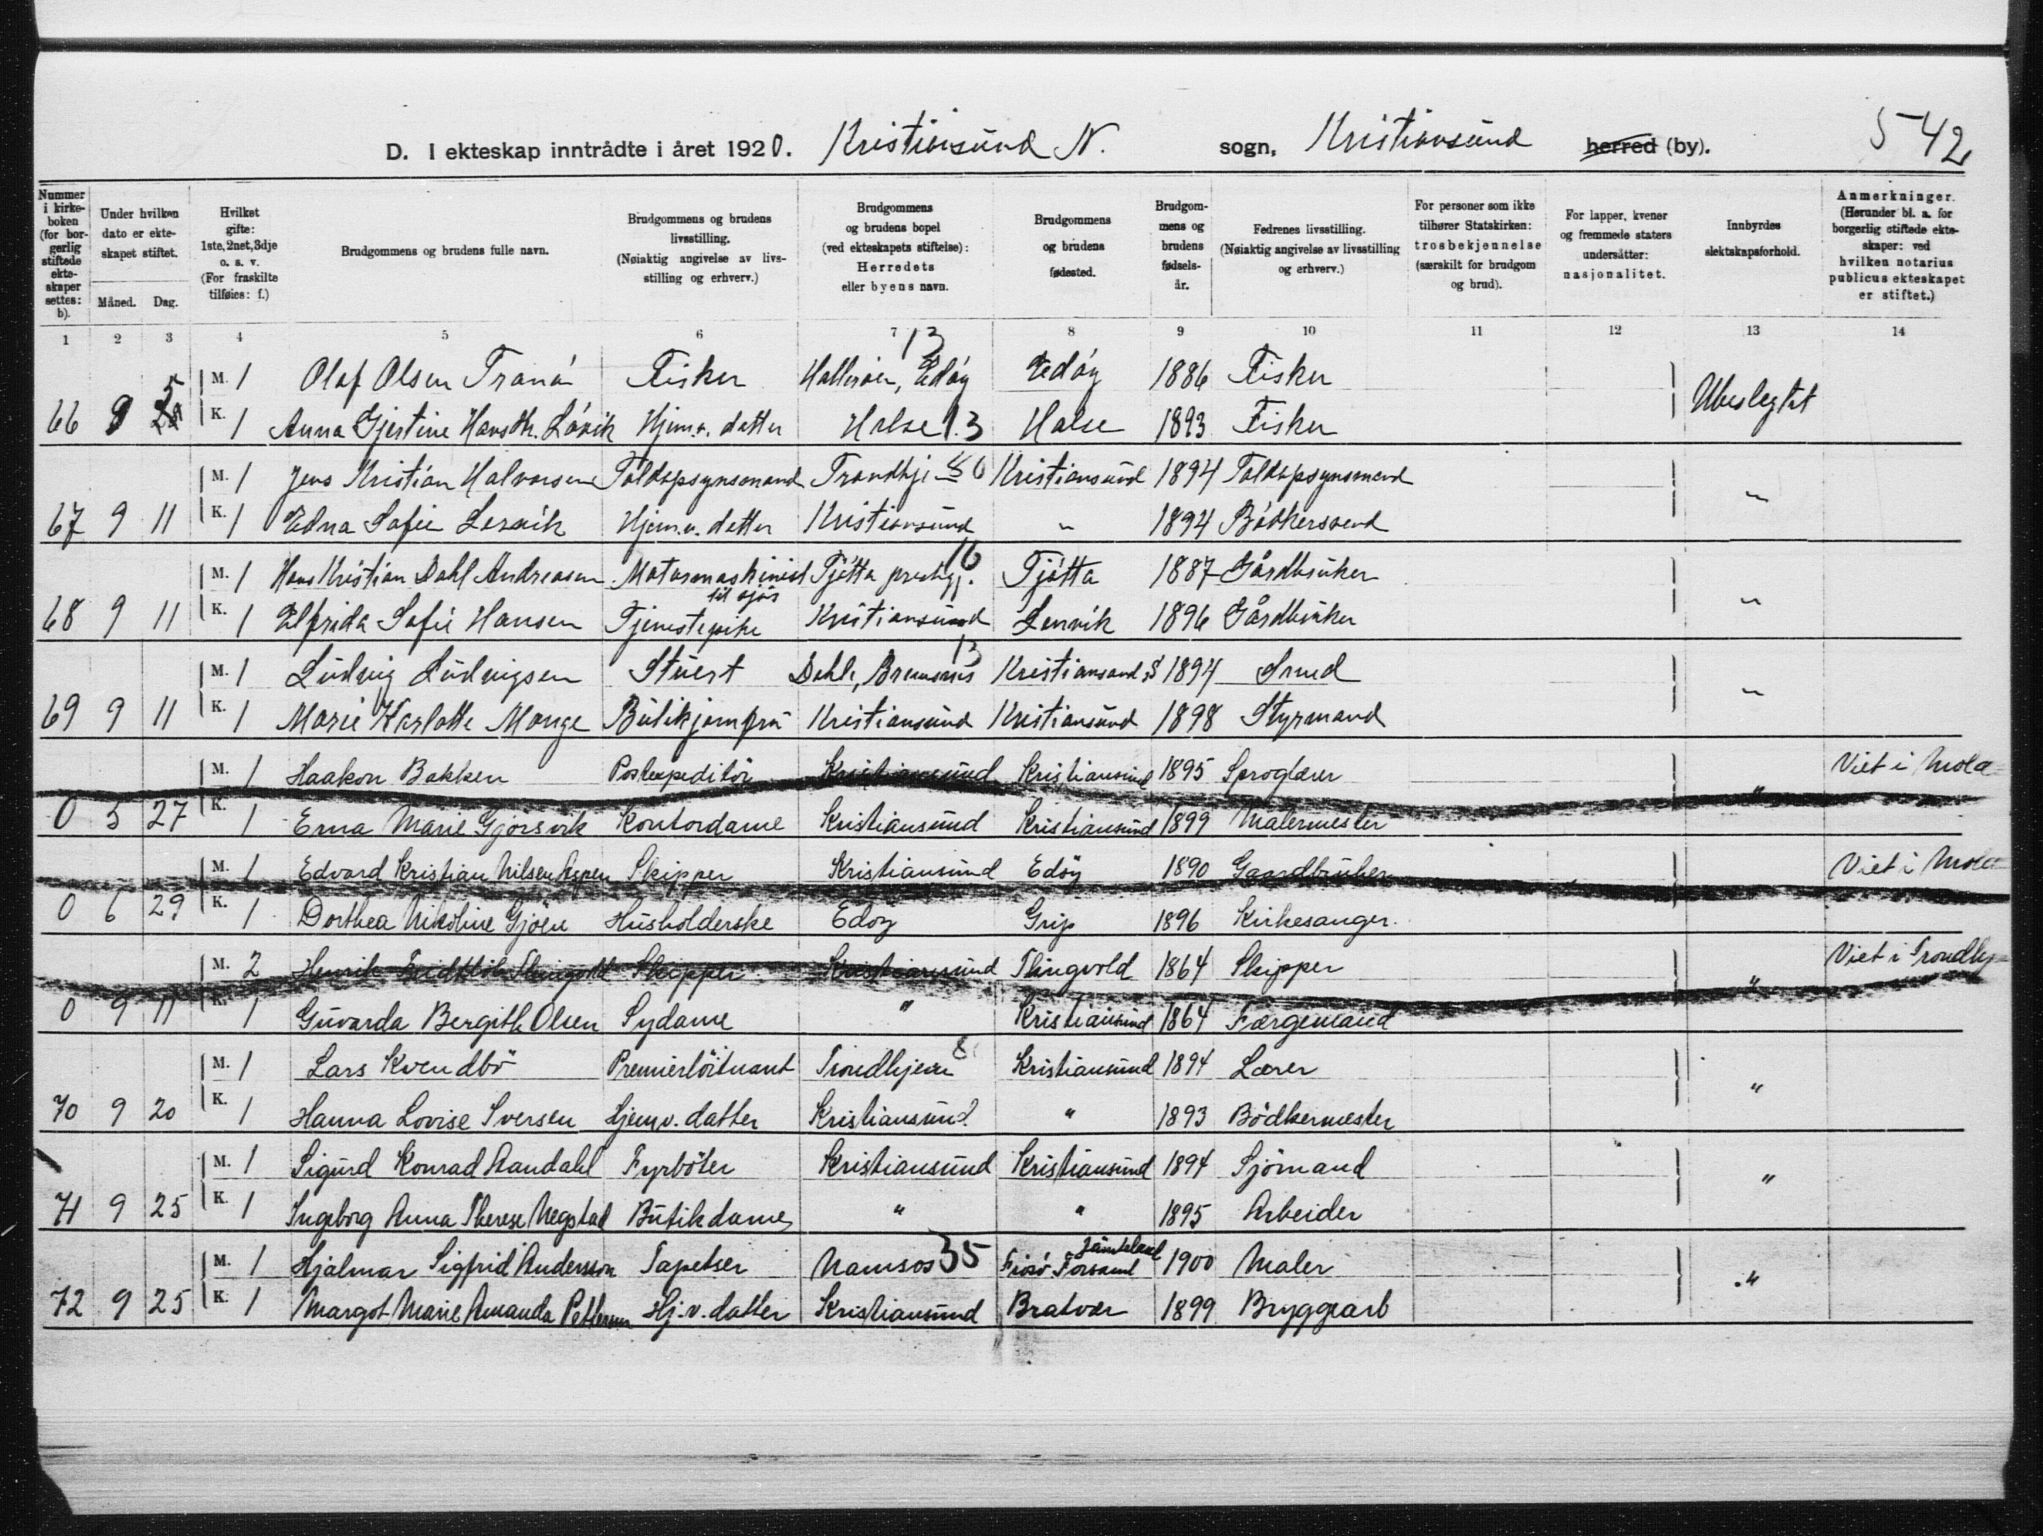 D. I ekteskap inntrådte i året 1920. Kristiansund N. sogn, Kristiansund herred (by). 542
Nummer i kirkeboken (for borgerlig stiftede ekteskaper settes: b).
Under hvilken dato er ekteskapet stiftet.
Måned. Dag.
Hvilket gifte: 1ste, 2net, 3dje o. s. v. (For fraskilte tilføies: f.)
Brudgommens og brudens fulle navn.
Brudgommens og brudens livsstilling. (Nøiaktig angivelse av livsstilling og erhverv.)
Brudgommens og brudens bopel (ved ekteskapets stiftelse): Herredets eller byens navn.
Brudgommens og brudens fødested.
Brudgommens og brudens fødselsår.
Fedrenes livsstilling. (Nøiaktig angivelse av livsstilling og erhverv.)
For personer som ikke tilhører Statskirken: trosbekjennelse (særskilt for brudgom og brud).
For lapper, kvener og fremmede staters undersåtter: nasjonalitet.
Innbyrdes slektskapsforhold.
Anmerkninger. (Herunder bl. a. for borgerlig stiftede ekteskaper: ved hvilken notarius publicus ekteskapet er stiftet.)
1 2 3 4 5 6 7 8 9 10 11 12 13 14
13
M. 1 Olaf Olsen Tranö Fisker Edöy Edöy 1886 Fisker Ubeslegtet
66 9 5 K. 1 Anna Gjertine Hansdtr. Lövik Hjem.v. datter Halse 13 Halse 1893 Fisker
M. 1 Jens Kristian Halvorsen Toldopsynsmand Trondhje 80 Kristiansund 1894 Toldopsynsmand
67 9 11 K. 1 Edna Sofie Lervik Hjem.v. datter Kristiansund " 1894 Bödkersvend "
16
M. 1 Hans Kristian Dahl Andreasen Motormaskinist til sjös Tjötta prestgj. Tjötta 1887 Gårdbruker
68 9 11 K. 1 Elfrida Sofie Hansen Tjenestepike Kristiansund Lenvik 1896 Gårdbruker "
13
M. 1 Ludvig Ludvigsen Stuert Dahle, Bremsnes Kristiansand S 1894 Smed
69 9 11 K. 1 Marie Karlotte Monge Butikjomfru Kristiansund Kristiansund 1898 Styrmand "
M. 1 Haakon Bakken Postexpeditör Kristiansund Kristiansund 1895 Sproglærer Viet i Mola
0 5 27 K. 1 Erna Marie Gjörsvik Kontordame Kristiansund Kristiansund 1899 Malermester "
M. 1 Edvard Kristian Nilsen Aspen Skipper Kristiansund Edöy 1890 Gaardbruker Viet i Mola
0 6 29 K. 1 Dorthea Nikoline Gjöen Husholderske Edöy Grip 1896 Kirkesanger.
M. 2 Henrik Skipper Kristiansund Thingvold 1864 Skipper Viet i Trondhj
0 9 11 K. 1 Guvarda Bergith Olsen Sydame " Kristiansund 1864 Færgemand "
M. 1 Lars Kvendbö Premierlöitnant Trondhjem 8 Kristiansund 1894 Lærer
70 9 20 K. 1 Hanna Lovise Iversen Hjemv. datter Kristiansund " 1893 Bödkermester "
M. 1 Sigurd Konrad Aandahl Fyrböter Kristiansund Kristiansund 1894 Sjömand
71 9 25 K. 1 Ingeborg Anna Therese Negstad Butikdame " " 1895 Arbeider "
M. 1 Hjalmar Sigfrid Andersson Tapetser Namsos 35 Jämteland 1900 Maler
72 9 25 K. 1 Margot Marie Amanda Pettersen Hj.v. datter Kristiansund Bratvær 1899 Bryggearb "